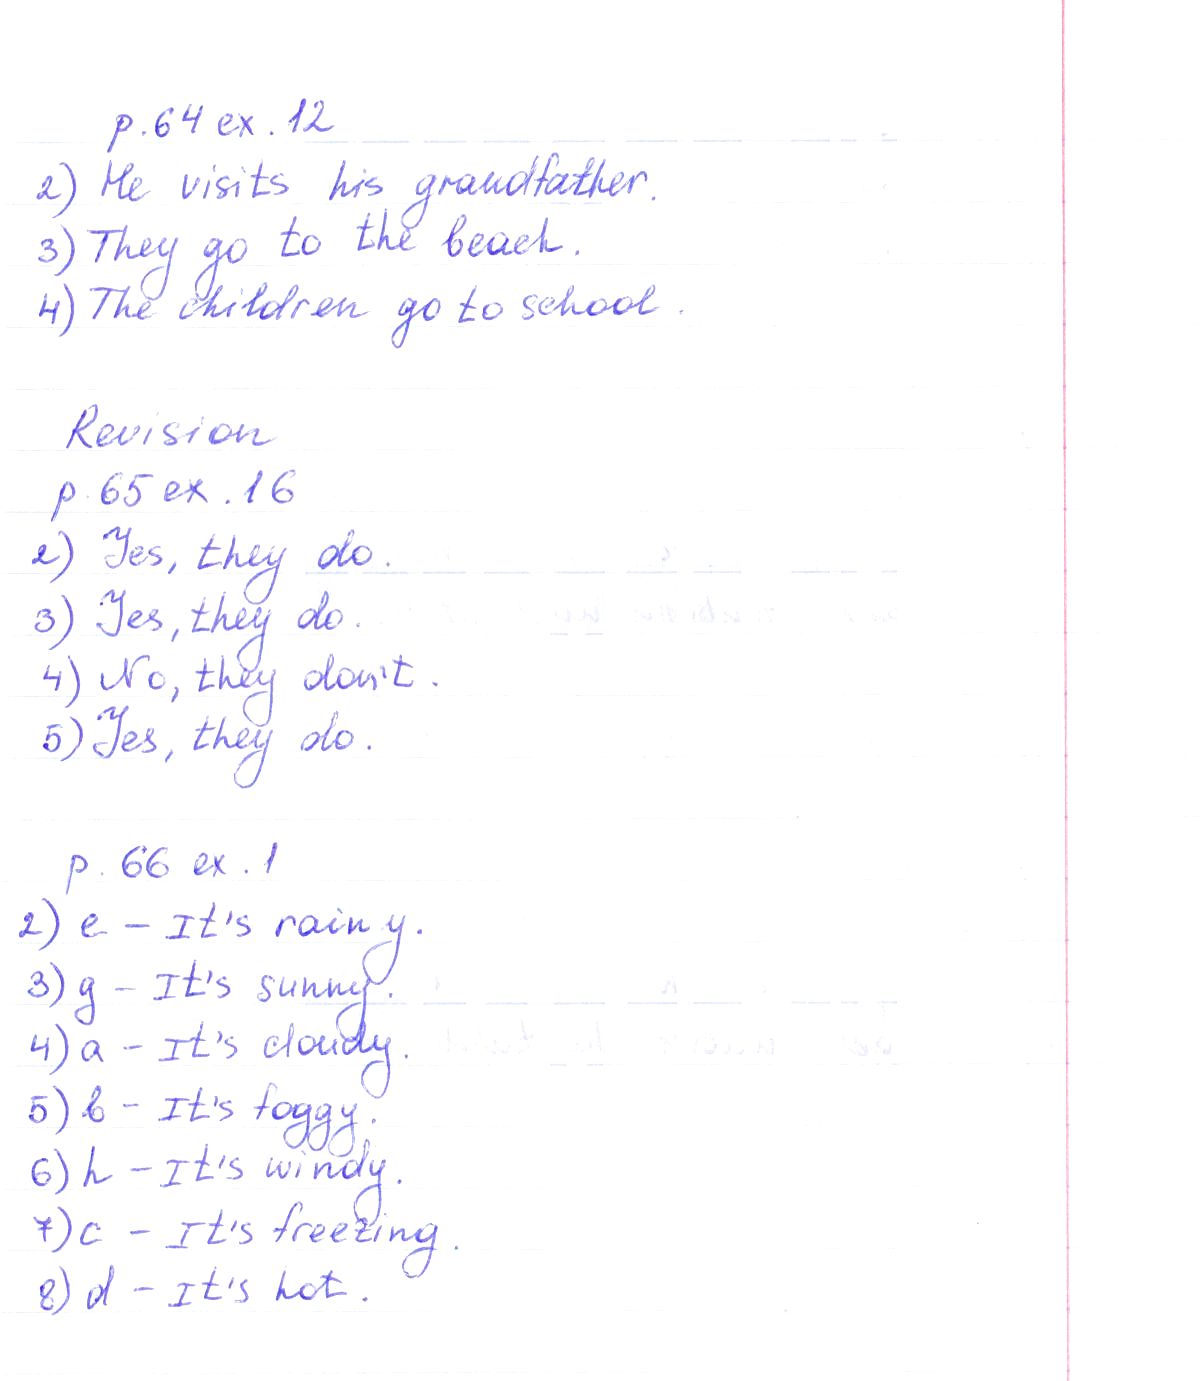 p. 64 ex. 12
2) He visits his grandfather.
3) They go to the beach.
4) The children go to school.
Revision
p. 65 ex. 16
2) Yes, they do.
3) Yes, they do.
4) No, they don't.
5) Yes, they do.
p. 66 ex. 1
2) e - It's rainy.
3) g - It's sunny.
4) a - It's cloudy.
5) b - It's foggy.
6) h - It's windy.
7) c - It's freezing.
8) d - It's hot.